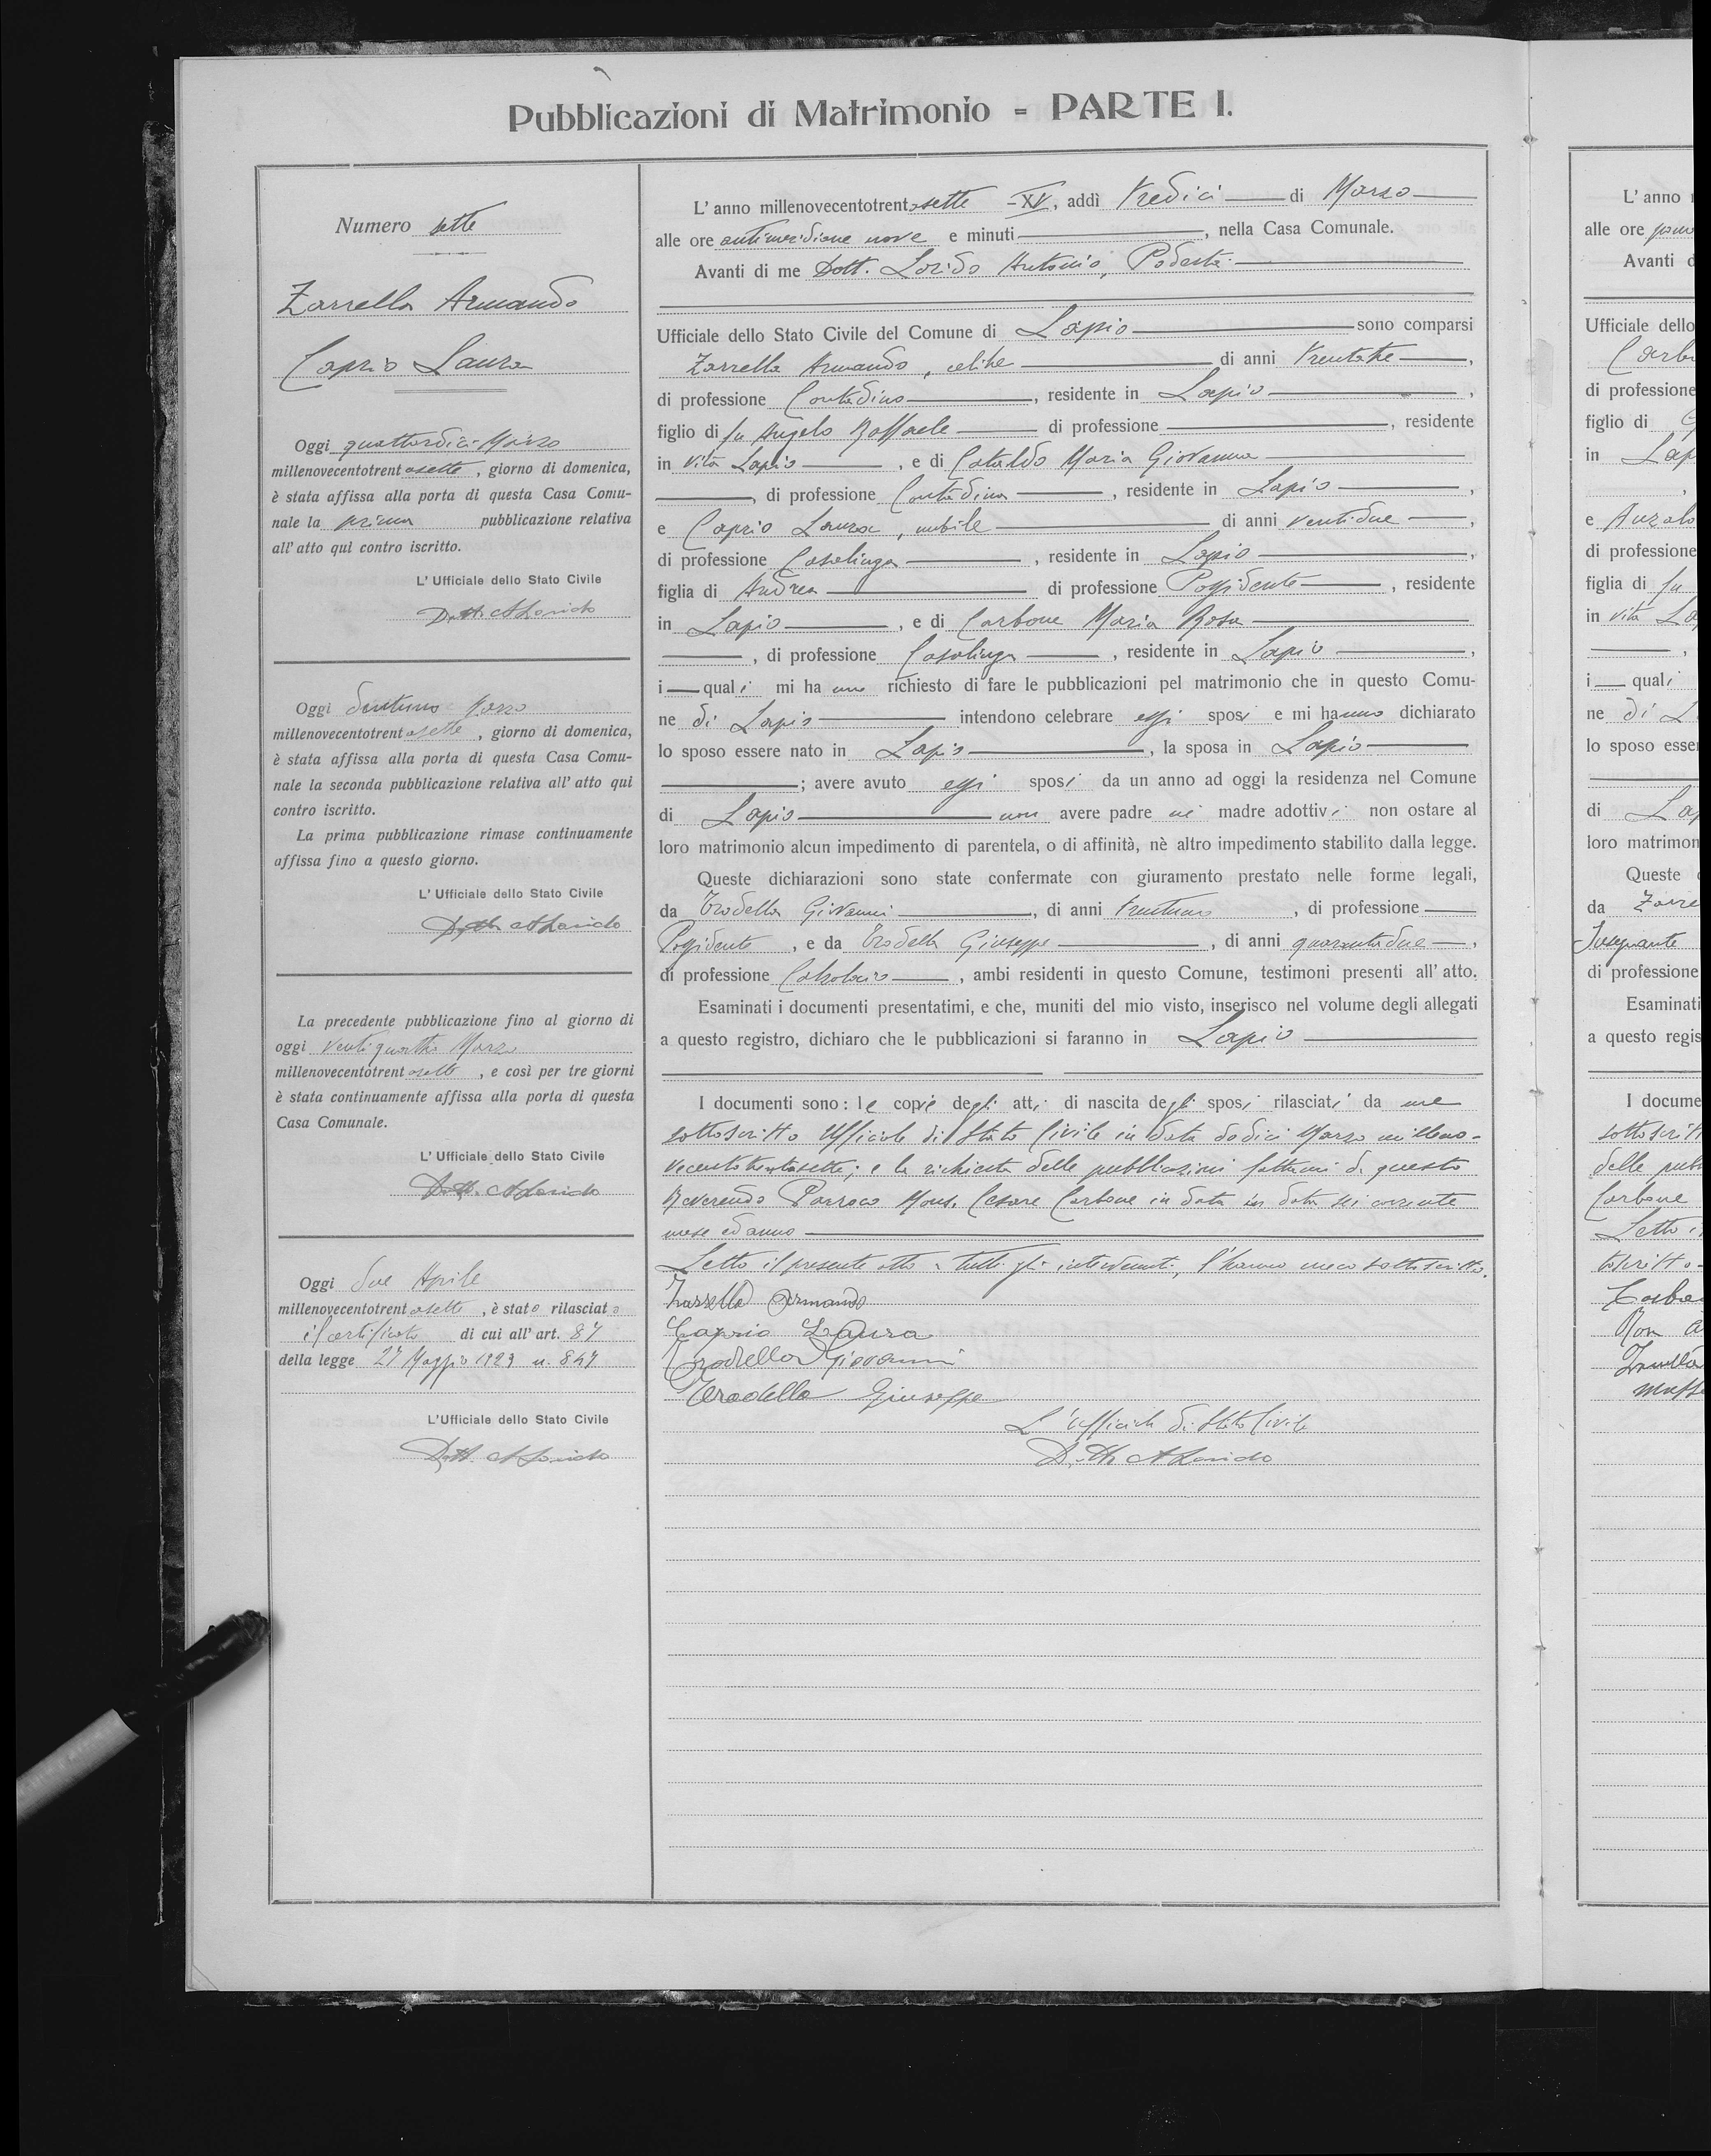 Pubblicazioni di Matrimonio - PARTE I.
Numero sette
Zarrella Armando
Caprio Laura
Oggi quattordici Marzo
millenovecentotrentasette, giorno di domenica,
è stata affissa alla porta di questa Casa Comu-
nale la prima pubblicazione relativa
all' atto qui contro iscritto.
L' Ufficiale dello Stato Civile
Dott. A Lorido
Oggi ventuno Marzo
millenovecentotrentasette, giorno di domenica,
è stata affissa alla porta di questa Casa Comu-
nale la seconda pubblicazione relativa all' atto qui
contro iscritto.
La prima pubblicazione rimase continuamente
affissa fino a questo giorno.
L' Ufficiale dello Stato Civile
Dott. A Lorido
La precedente pubblicazione fino al giorno di
oggi ventiquattro Marzo
millenovecentotrentasette, e così per tre giorni
è stata continuamente affissa alla porta di questa
Casa Comunale.
L' Ufficiale dello Stato Civile
Dott. A Lorido
Oggi due Aprile
millenovecentotrentasette, è stato rilasciato
il certificato di cui all' art. 87
della legge 27 Maggio 1929 n. 847
L'Ufficiale dello Stato Civile
Dott. A Lorido
L' anno millenovecentotrentasette -XV, addì tredici di Marzo
alle ore antimeridiane nove e minuti , nella Casa Comunale.
Avanti di me Dott. Lorido Antonio, Podestà
Ufficiale dello Stato Civile del Comune di Lapio sono comparsi
Zarrella Armando, celibe di anni trentatre,
di professione Contadino, residente in Lapio,
figlio di fu Angelo Raffaele di professione , residente
in vita Lapio, e di Cataldo Maria Giovanna
, di professione Contadina, residente in Lapio,
e Caprio Laura, nubile di anni ventidue,
di professione Casalinga, residente in Lapio,
figlia di Andrea di professione Possidente, residente
in Lapio, e di Carbone Maria Rosa
, di professione Casalinga, residente in Lapio,
i quali mi hanno richiesto di fare le pubblicazioni pel matrimonio che in questo Comu-
ne di Lapio intendono celebrare essi sposi e mi hanno dichiarato
lo sposo essere nato in Lapio, la sposa in Lapio
; avere avuto essi sposi da un anno ad oggi la residenza nel Comune
di Lapio non avere padre nè madre adottivi non ostare al
loro matrimonio alcun impedimento di parentela, o di affinità, nè altro impedimento stabilito dalla legge.
Queste dichiarazioni sono state confermate con giuramento prestato nelle forme legali,
da Trodella Giovanni, di anni trentuno, di professione
Possidente, e da Trodella Giuseppe, di anni quarantadue,
di professione Calzolaio, ambi residenti in questo Comune, testimoni presenti all' atto.
Esaminati i documenti presentatimi, e che, muniti del mio visto, inserisco nel volume degli allegati
a questo registro, dichiaro che le pubblicazioni si faranno in Lapio
I documenti sono: le copie degli atti di nascita degli sposi rilasciati da me
sottoscritto Ufficiale di Stato Civile in data dodici Marzo milleno-
vecentotrentasette; e la richiesta delle pubblicazioni fattami da questo
Reverendo Parroco Mons. Cesare Carbone in data in data sei corrente
mese ed anno
Letto il presente atto a tutti gli intervenuti, l'hanno meco sottoscritto.
Zarrella Armando
Caprio Laura
Trodella Giovanni
Trodella Giuseppe
L' Ufficiale di Stato Civile
Dott. A Lorido
L' anno
alle ore
Avanti d
Ufficiale dello
di professione
figlio di
in Lap
e
di professione
figlia di fu
in vita La
i quali
ne di L
lo sposo esser
di La
loro matrimon
Queste
da Zarre
Insegnante
di professione
Esaminati
a questo regis
I docume
sottoscritt
delle pubb
Carbone
Letto i
toscritto